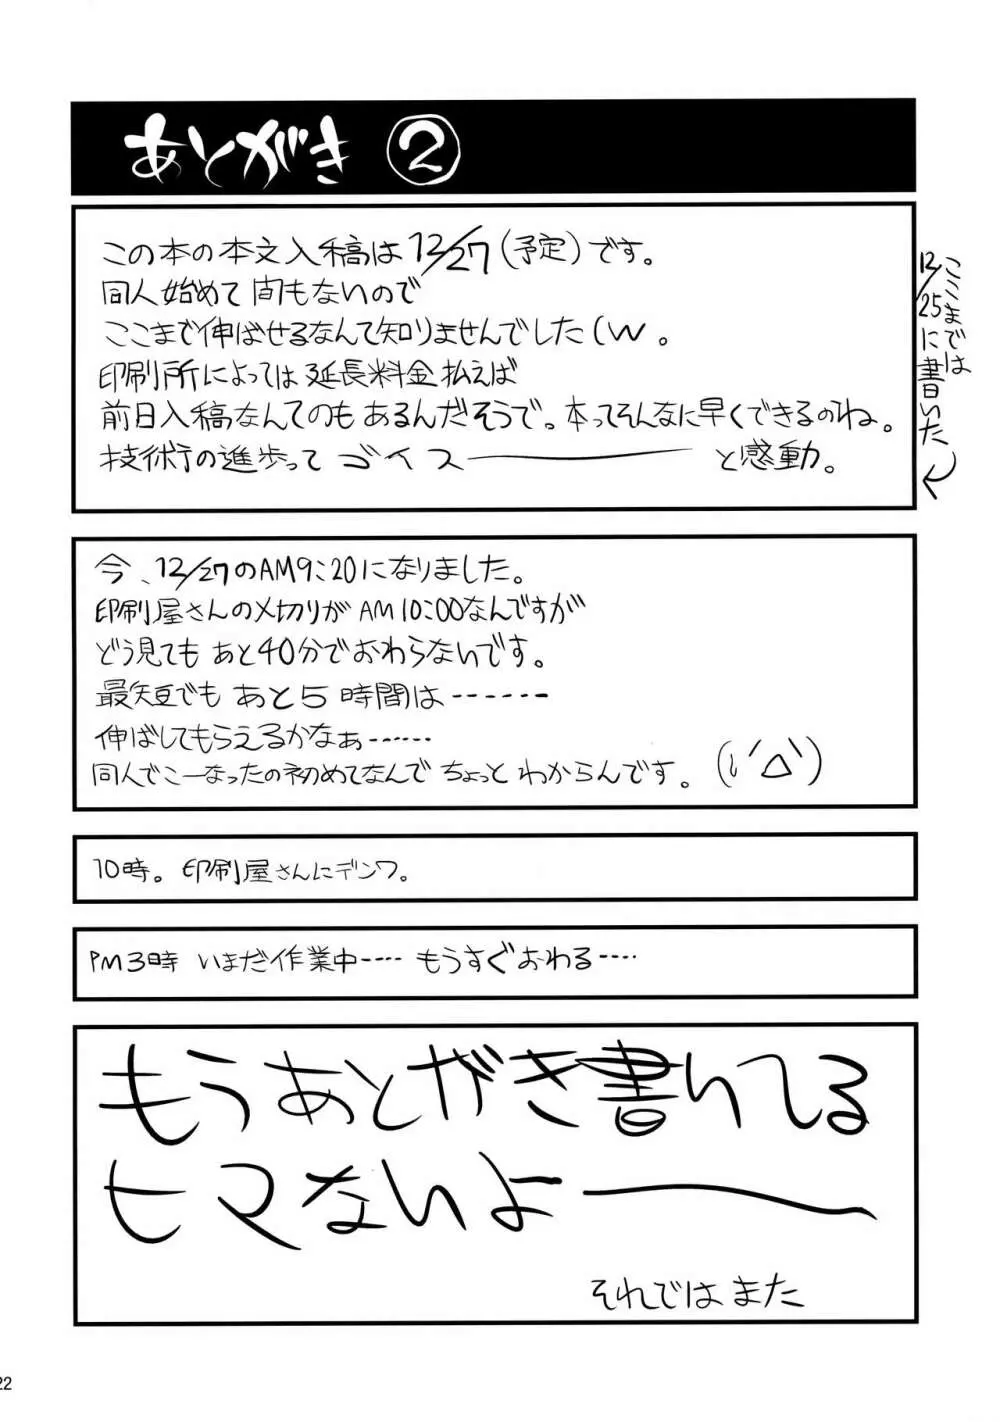 あとがき ②
この本の本文入稿は12/27(予定)です。
同人始めて間もないので
ここまで伸ばせるなんて知りませんでした(w。
印刷所によっては延長料金払えば
前日入稿なんてのもあるんだそうで。本ってそんなに早くできるのね。
技術の進歩ってゴイスーーーと感動。
ここまでは
12/25に書いた
今、12/27のAM9:20になりました。
印刷屋さんの〆切りがAM10:00なんですが
どう見てもあと40分でおわらないです。
最短でもあと5時間は-------
伸ばしてもらえるかなぁ------
同人でこーなったの初めてなんでちょっとわからんです。(ι´Δ`)
10時。印刷屋さんにデンワ。
PM3時 いまだ作業中----- もうすぐおわる----
もうあとがき書いてる
ヒマないよーーー
それではまた
22